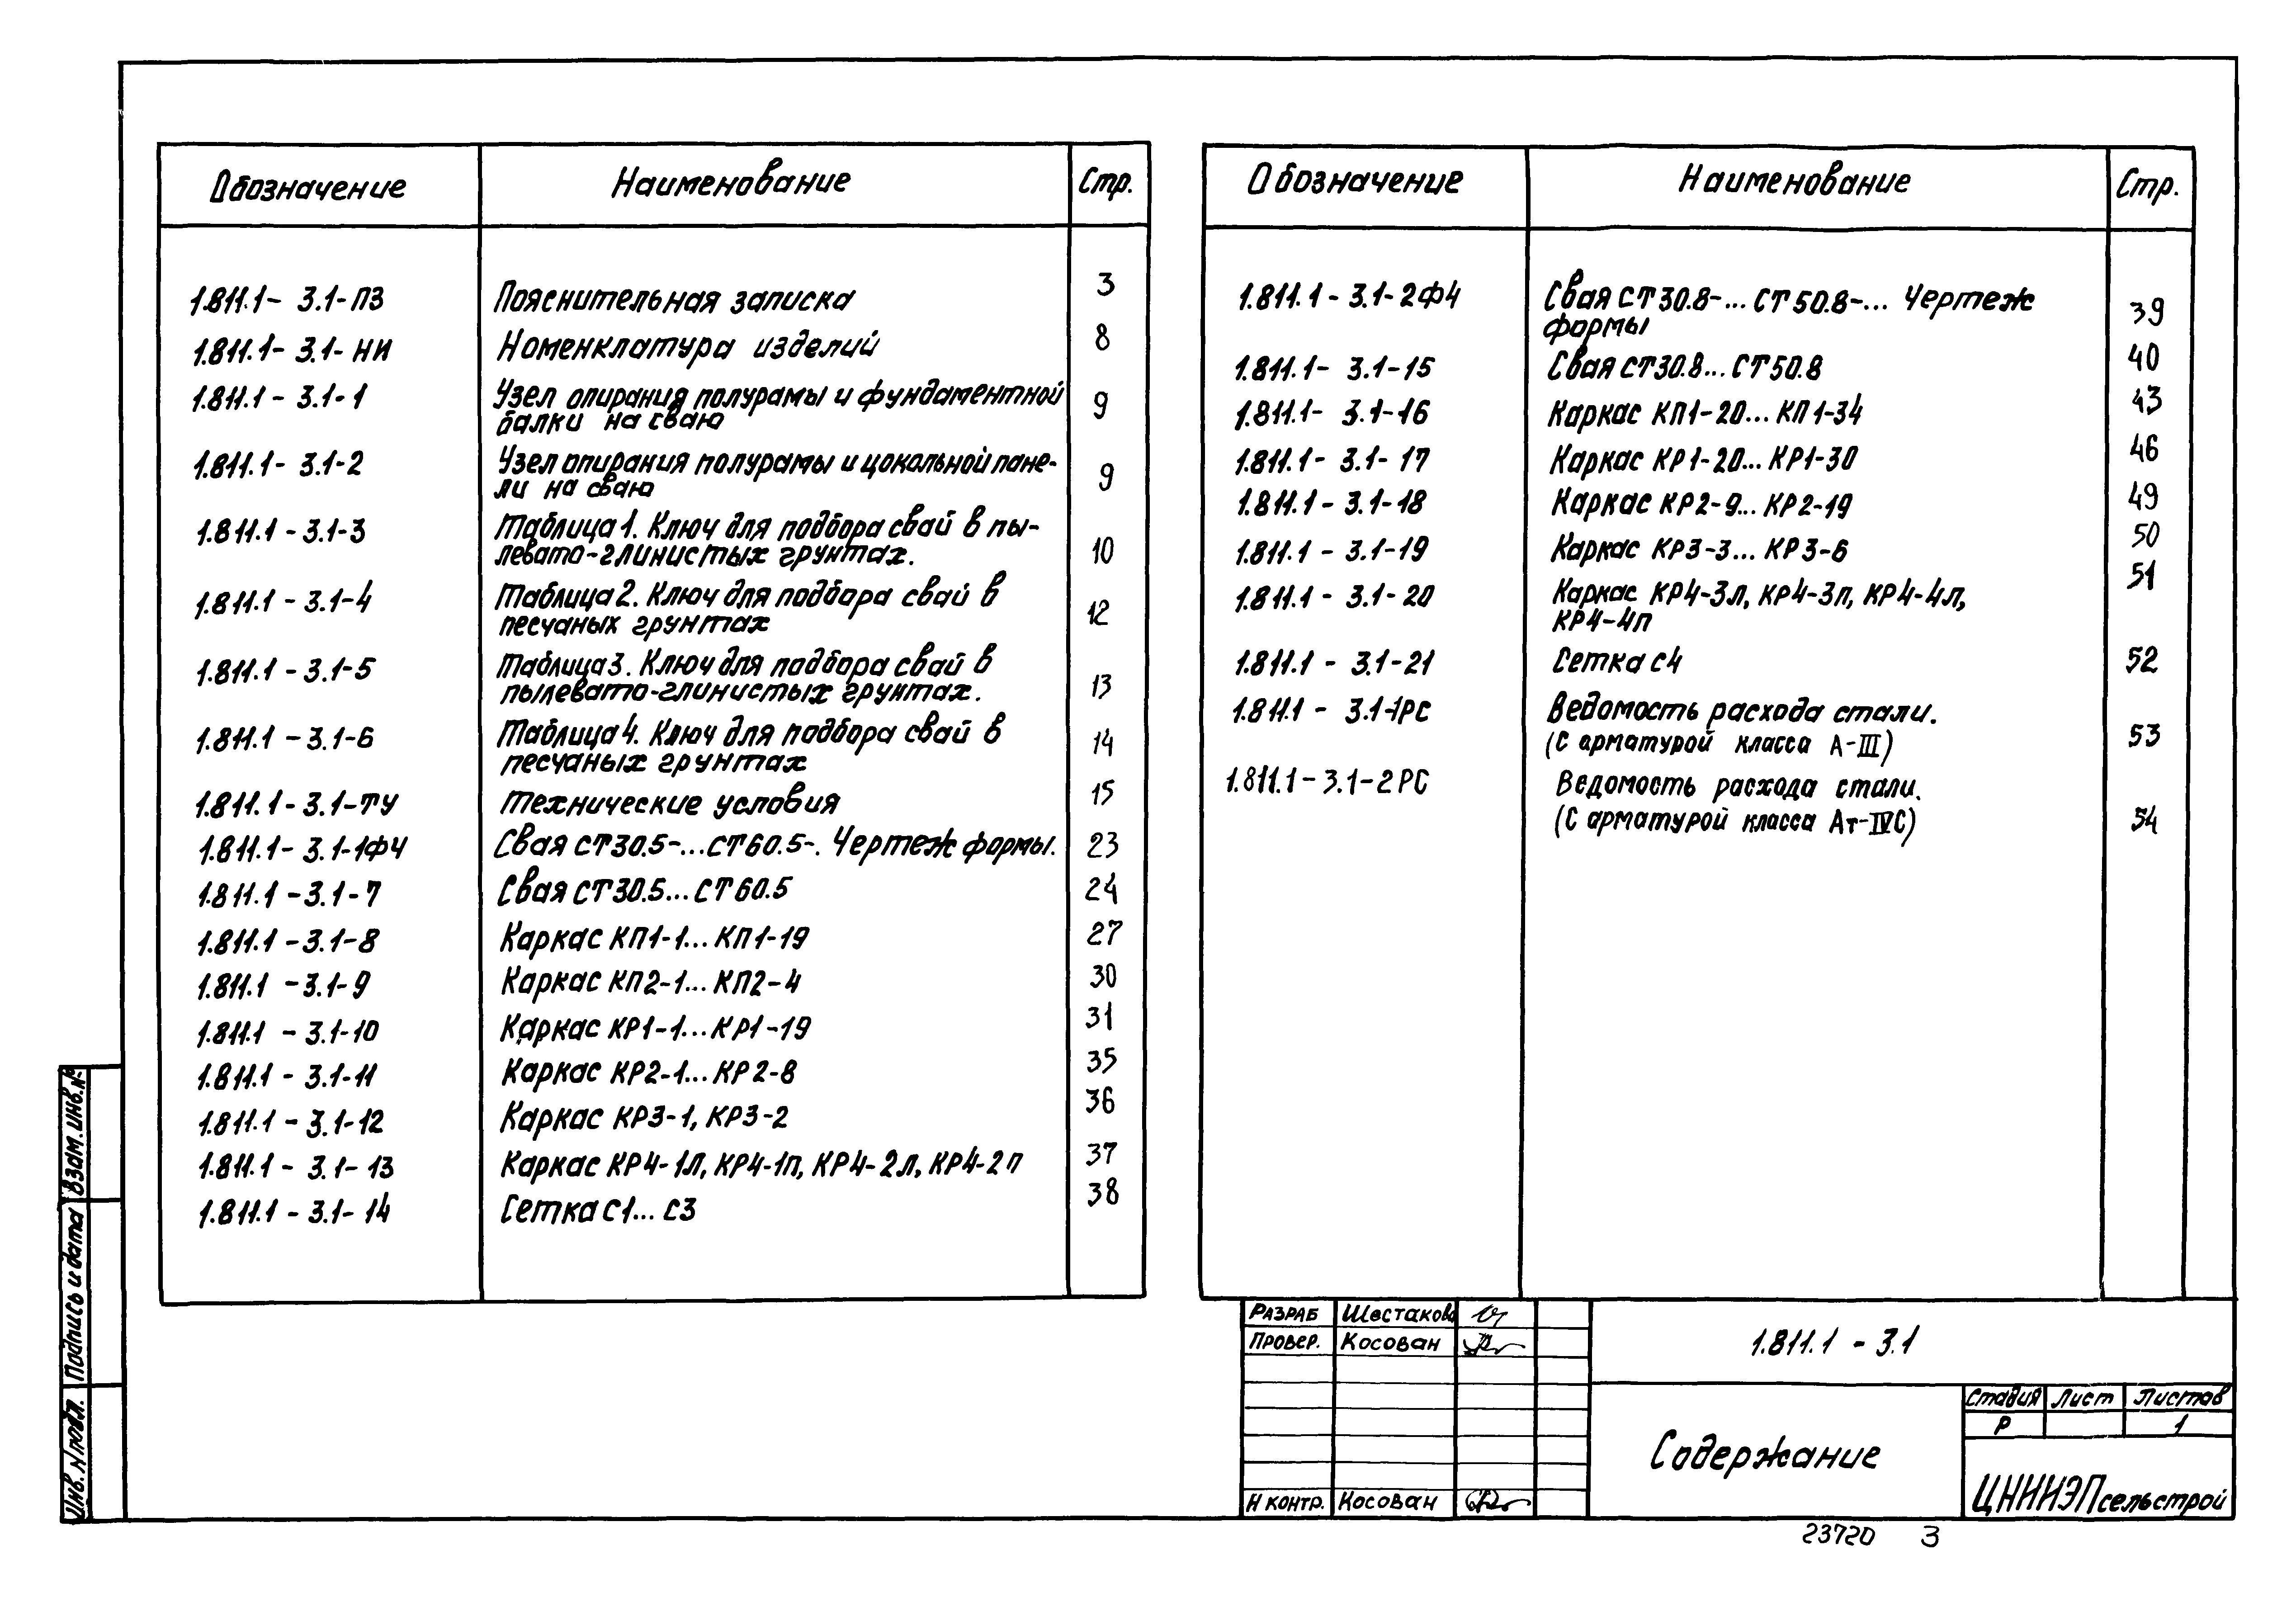 Обозначение Наименование Стр.
1.811.1- 3.1-ПЗ Пояснительная записка 3
1.811.1- 3.1- НИ Номенклатура изделий 8
1.811.1 - 3.1-1 Узел опирания полурамы и фундаментной
балки на сваю 9
1.811.1- 3.1-2 Узел опирания полурамы и цокольной пане-
ли на сваю 9
1.811.1 -3.1-3 Таблица 1. Ключ для подбора свай в пы-
левато-глинистых грунтах. 10
1.811.1 - 3.1-4 Таблица 2. Ключ для подбора свай в
песчаных грунтах 12
1.811.1 - 3.1-5 Таблица 3. Ключ для подбора свай в
пылевато-глинистых грунтах. 13
1.811.1 - 3.1-6 Таблица 4. Ключ для подбора свай в
песчаных грунтах 14
1.811.1 - 3.1-ТУ Технические условия 15
1.811.1- 3.1-1ФЧ Свая СТ30.5-...СТ60.5-. Чертеж формы. 23
1.811.1 -3.1-7 Свая СТ30.5...СТ60.5 24
1.811.1 -3.1-8 Каркас КП1-1...КП1-19 27
1.811.1 -3.1-9 Каркас КП2-1...КП2-4 30
1.811.1 - 3.1-10 Каркас КР1-1...КР1-19 31
1.811.1 - 3.1-11 Каркас КР2-1...КР2-8 35
1.811.1 - 3.1-12 Каркас КР3-1, КР3-2 36
1.811.1 - 3.1-13 Каркас КР4-1Л, КР4-1П, КР4-2Л, КР4-2П 37
1.811.1 - 3.1-14 Сетка С1...С3 38
Обозначение Наименование Стр.
1.811.1 - 3.1-2ФЧ Свая СТ30.8-...СТ50.8-... Чертеж
формы 39
1.811.1- 3.1-15 Свая СТ30.8...СТ50.8 40
1.811.1- 3.1-16 Каркас КП1-20...КП1-34 43
1.811.1- 3.1- 17 Каркас КР1-20...КР1-30 46
1.811.1 - 3.1-18 Каркас КР2-9...КР2-19 49
1.811.1 - 3.1-19 Каркас КР3-3...КР3-6 50
1.811.1 - 3.1-20 Каркас КР4-3Л, КР4-3П, КР4-4Л, 51
КР4-4П
1.811.1 - 3.1-21 Сетка С4 52
1.811.1 - 3.1-1РС Ведомость расхода стали.
(С арматурой класса А-III) 53
1.811.1-3.1-2РС Ведомость расхода стали.
(С арматурой класса Ат-IVС) 54
Взам. инв. №
Подпись и дата
Инв. N подл.
Разраб Шестакова
Провер. Косован
Н контр. Косован
1.811.1 - 3.1
Содержание
Стадия Лист Листов
Р 1
ЦНИИЭПсельстрой
23720 3